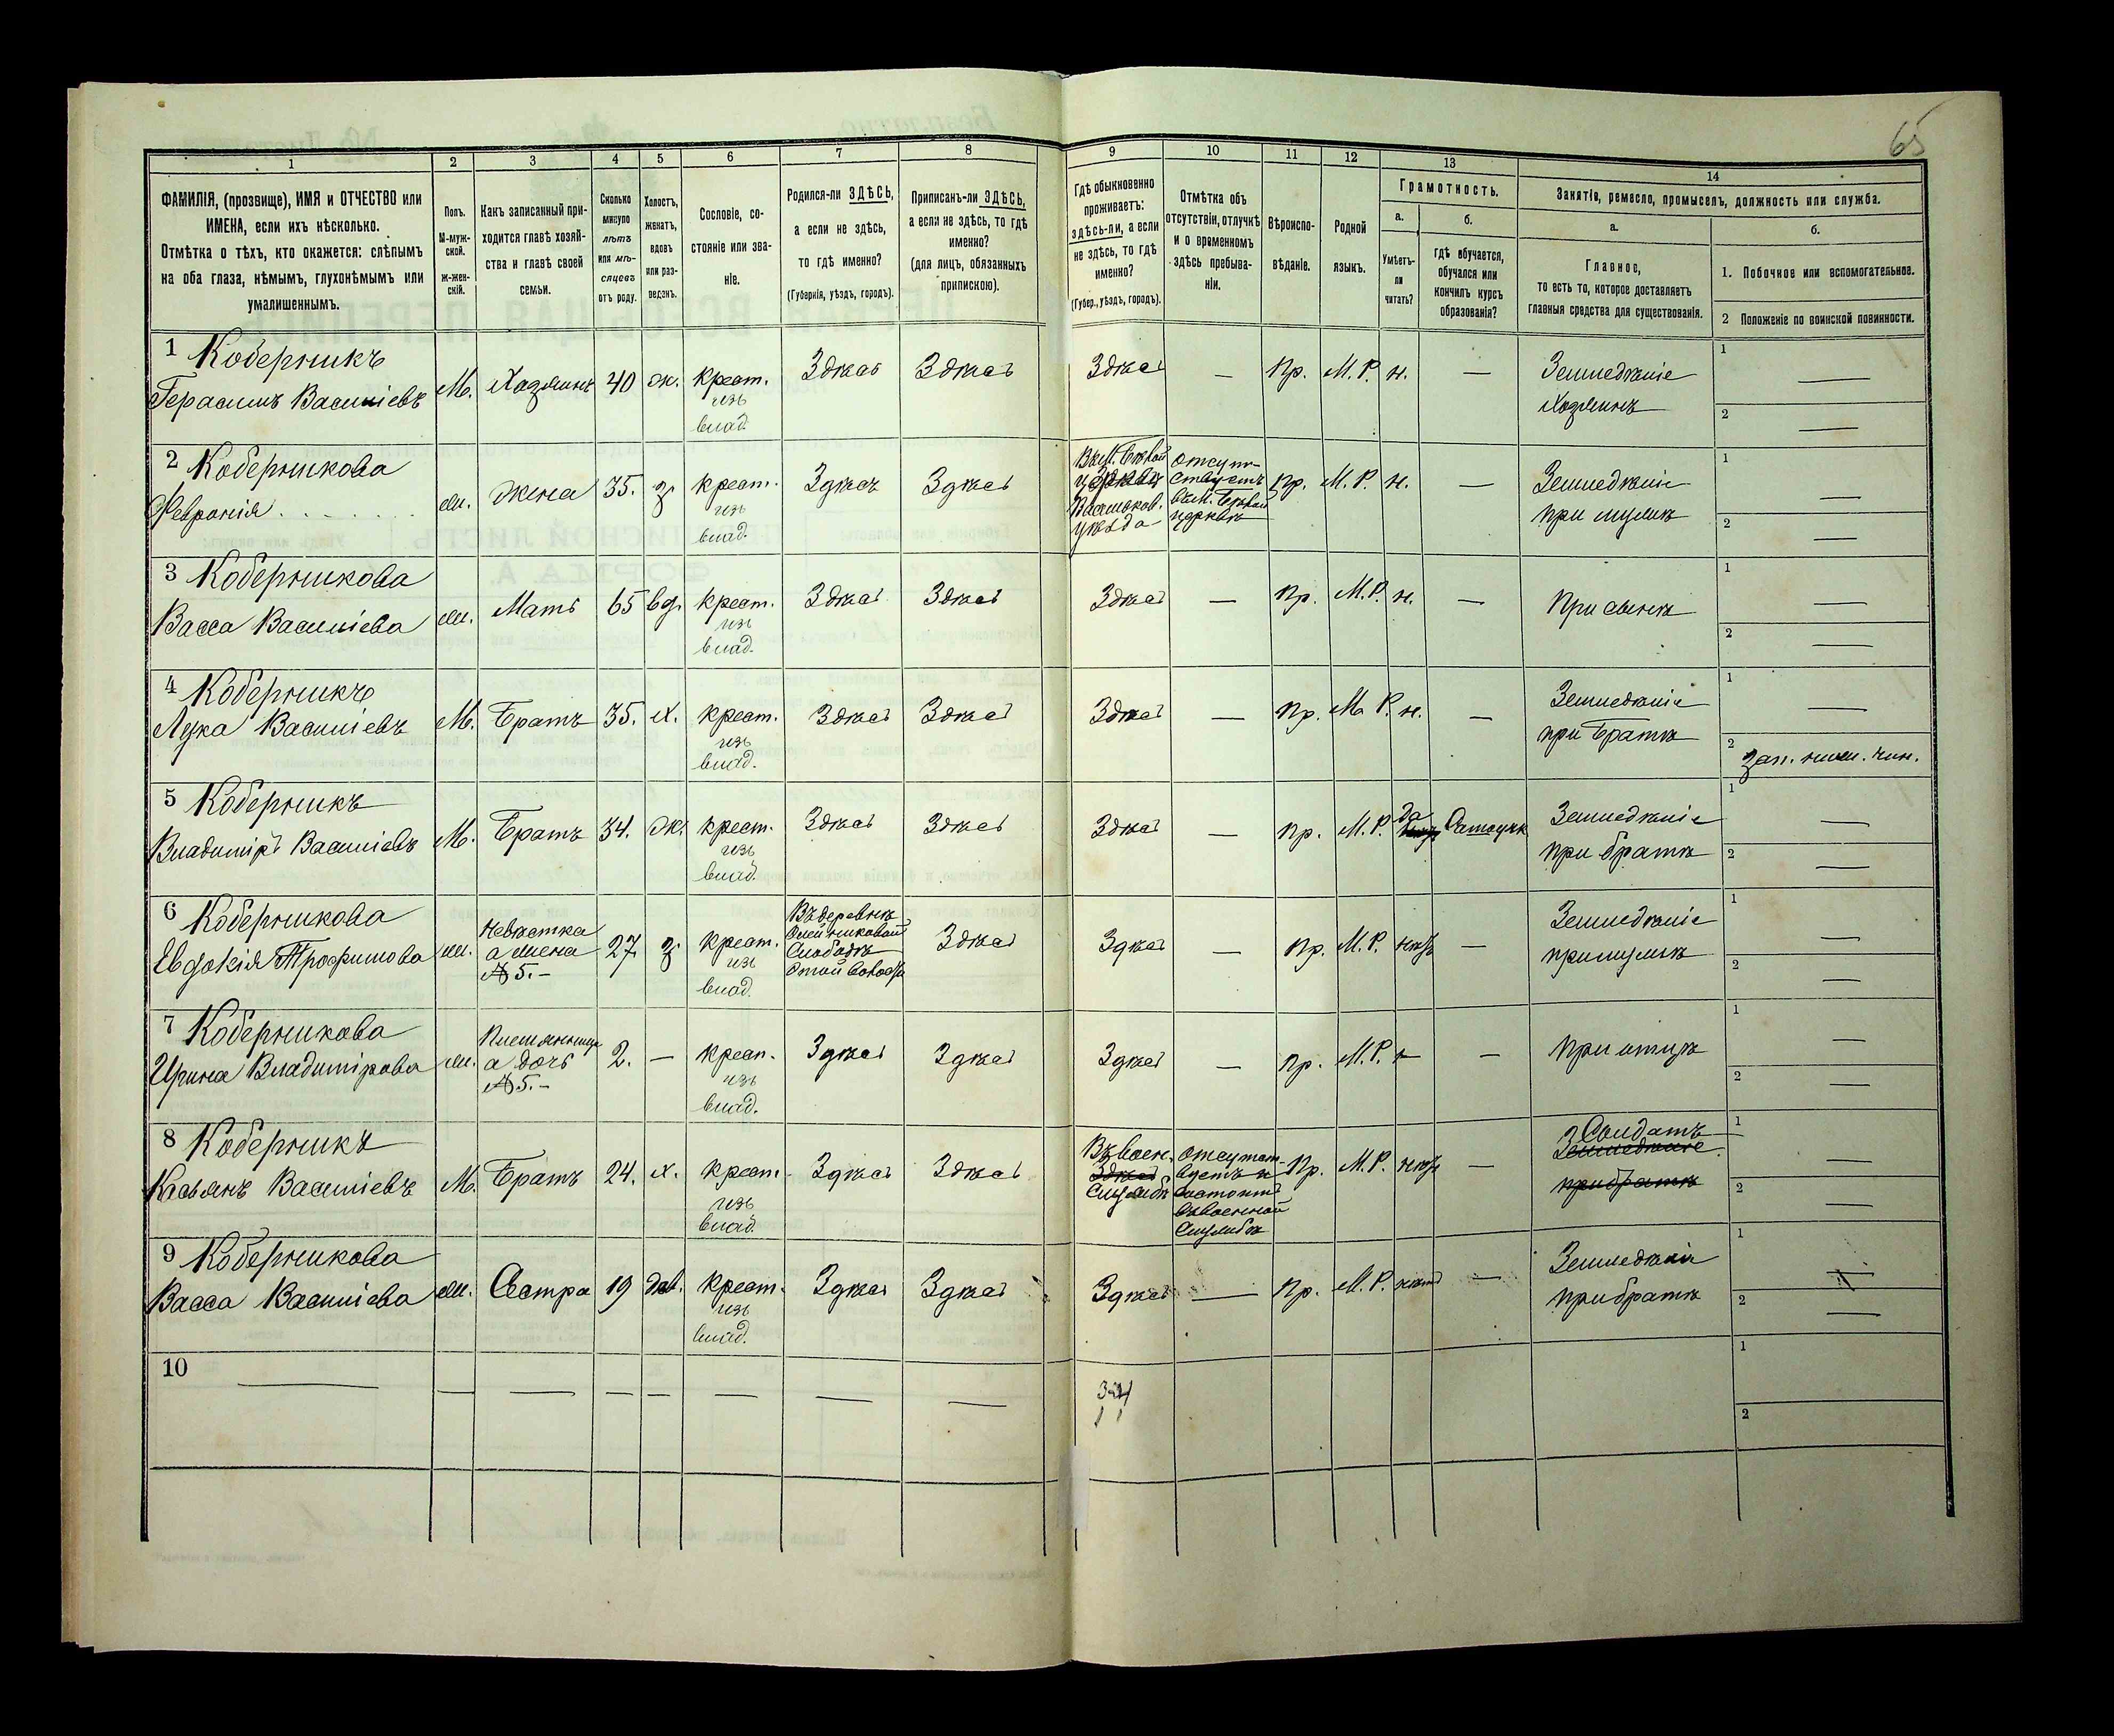 65
1 2 3 4 5 6 7 8 9 10 11 12 13 14
ФАМИЛІЯ, (прозвище), ИМЯ и ОТЧЕСТВО или
ИМЕНА, если ихъ нѣсколько.
Отмѣтка о тѣхъ, кто окажется: слѣпымъ
на оба глаза, нѣмымъ, глухонѣмымъ или
умалишеннымъ.
Полъ.
М-муж-
ской.
Ж-жен-
скій.
Какъ записанный при-
ходится главѣ хозяй-
ства и главѣ своей
семьи.
Сколько
минуло
лѣтъ
или мѣ-
сяцевъ
отъ роду.
Холостъ,
женатъ,
вдовъ
или раз-
веденъ.
Сословіе, со-
стояніе или зва-
ніе.
Родился-ли ЗДѢСЬ,
а если не здѣсь,
то гдѣ именно?
(Губернія, уѣздъ, городъ).
Приписанъ-ли ЗДѢСЬ,
а если не здѣсь, то гдѣ
именно?
(для лицъ, обязанныхъ
припискою).
Гдѣ обыкновенно
проживаетъ:
здѣсь-ли, а если
не здѣсь, то гдѣ
именно?
(Губер., уѣздъ, городъ).
Отмѣтка объ
отсутствіи, отлучкѣ
и о временномъ
здѣсь пребыва-
ніи.
Вѣроиспо-
вѣданіе.
Родной
языкъ.
Грамотность.
а.
Умѣетъ-
ли
читать?
б.
гдѣ обучается,
обучался или
кончилъ курсъ
образованія?
Занятіе, ремесло, промыселъ, должность или служба.
а.
Главное,
то есть то, которое доставляетъ
главныя средства для существованія.
б.
1. Побочное или вспомогательное.
2 Положеніе по воинской повинности.
1 Коберникъ
Герасимъ Василіевъ
М. Хозяинъ 40 ж. крест.
изъ
влад.
Здѣсь Здѣсь Здѣсь — Пр. М. Р. н. —
Земледѣліе
Хозяинъ
1 —
2 —
2 Коберникова
Февронія
ж. Жена 35. з. крест.
изъ
влад.
Здѣсь Здѣсь
уѣзда
Отсут-
ствуетъ
церквѣ
Пр. М. Р. н. —
Земледѣліе
при мужѣ
1 —
2 —
3 Коберникова
Васса Василіева
ж. Мать 65 вд. крест.
изъ
влад.
Здѣсь Здѣсь Здѣсь — Пр. М. Р. н. —
При сынѣ
1 —
2 —
4 Коберникъ
Лука Василіевъ
М. Братъ 35. х. крест.
изъ
влад.
Здѣсь Здѣсь Здѣсь — Пр. М. Р. н. —
Земледѣліе
при Братѣ
1 —
2 Зап. ниж. чин.
5 Коберникъ
Владиміръ Василіевъ
М. Братъ 34. ж. крест.
изъ
влад.
Здѣсь Здѣсь Здѣсь — Пр. М. Р. да
Земледѣліе
при братѣ
1 —
2 —
6 Коберникова
Евдокія Трофимова
ж. Невѣстка
а жена
№ 5.-
27 з. крест.
изъ
влад.
Въ деревнѣ
Олейниковой
Слободѣ
Здѣсь Здѣсь — Пр. М. Р. нѣтъ —
Земледѣліе
при мужѣ
1 —
2 —
7 Коберникова
Ирина Владимірова
ж. Племянница
а дочь
№ 5.-
2. — крест.
изъ
влад.
Здѣсь Здѣсь Здѣсь — Пр. М. Р. — —
При отцѣ
1 —
2 —
8 Коберникъ
Касьянъ Василіевъ
М. Братъ 24. х. крест.
изъ
влад.
Здѣсь Здѣсь
Въ воен.
Здѣсь
Службѣ
Отсутст-
вуетъ и
состоитъ
въ военной
службѣ
Пр. М. Р. нѣтъ —
Солдатъ
Земледѣліе
при братѣ
1 —
2 —
9 Коберникова
Васса Василіева
ж. Сестра 19 дѣв. крест.
изъ
влад.
Здѣсь Здѣсь Здѣсь — Пр. М. Р. нѣтъ —
Земледѣліе
при братѣ
1 —
2 —
10 — — — — — — — —
1
2